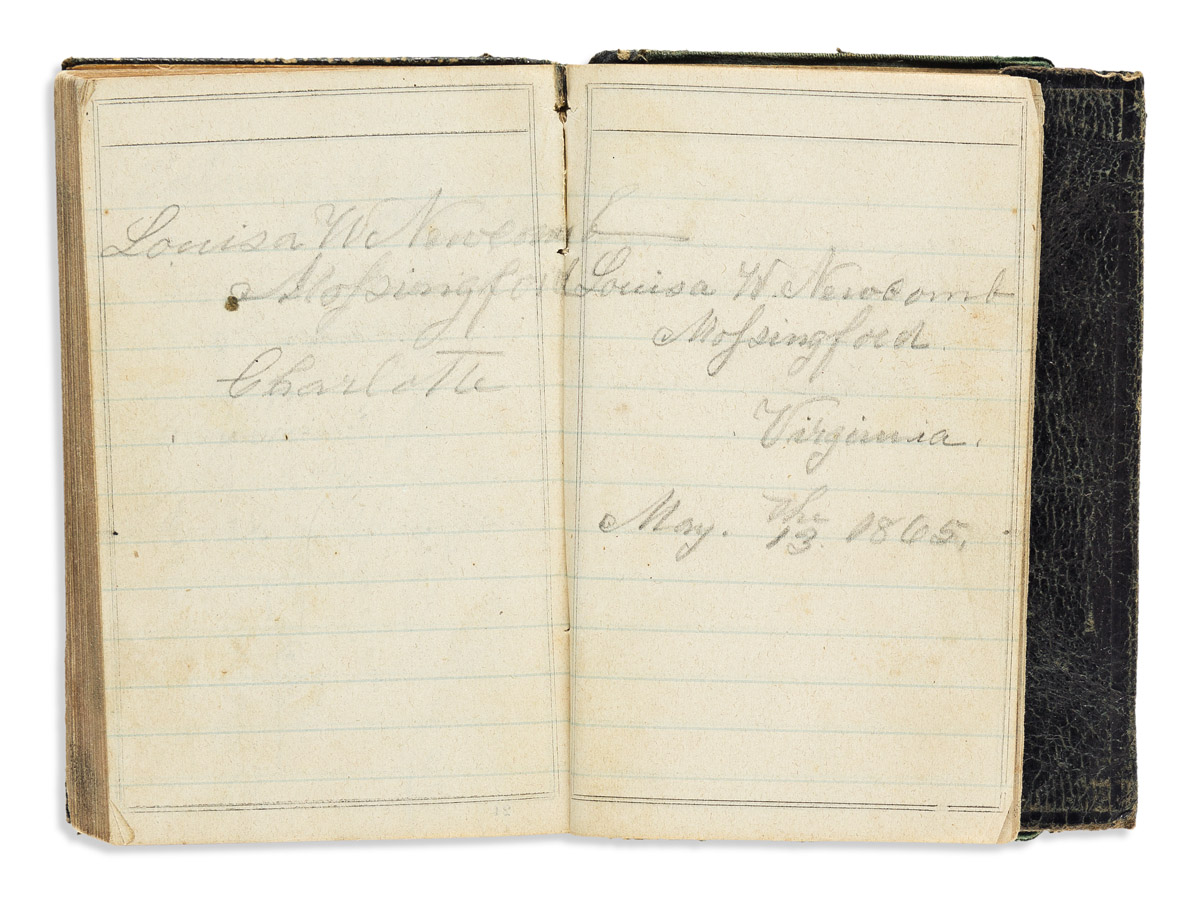 Louisa W Newcomb
Moſsingford
Charlotte
Louisa W. Newcomb
Moſsingford
Virginia.
May. the 13 1865.